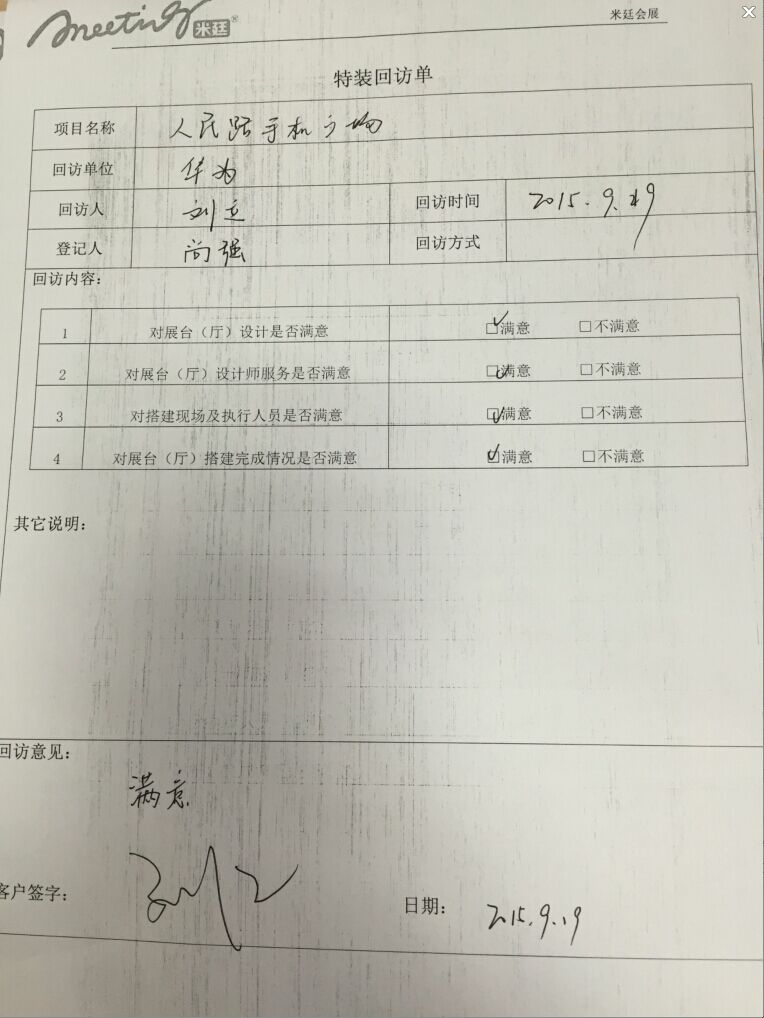 meeting 米廷®
米廷会展
特装回访单
项目名称 人民路手机广场
回访单位 华为
回访人 刘立 回访时间 2015.9.19
登记人 尚强 回访方式
回访内容:
1 对展台（厅）设计是否满意 ☑满意 □不满意
2 对展台（厅）设计师服务是否满意 ☑满意 □不满意
3 对搭建现场及执行人员是否满意 ☑满意 □不满意
4 对展台（厅）搭建完成情况是否满意 ☑满意 □不满意
其它说明:
回访意见:
满意
客户签字: 刘立 日期: 2015.9.19